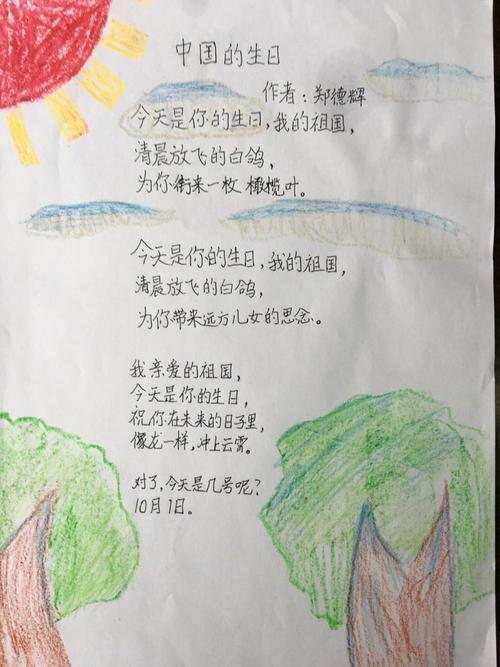 中国的生日
作者：郑德辉
今天是你的生日，我的祖国，
清晨放飞的白鸽，
为你衔来一枚橄榄叶。
今天是你的生日，我的祖国，
清晨放飞的白鸽，
为你带来远方儿女的思念。
我亲爱的祖国，
今天是你的生日，
祝你在未来的日子里，
像龙一样，冲上云霄。
对了，今天是几号呢？
10月1日。